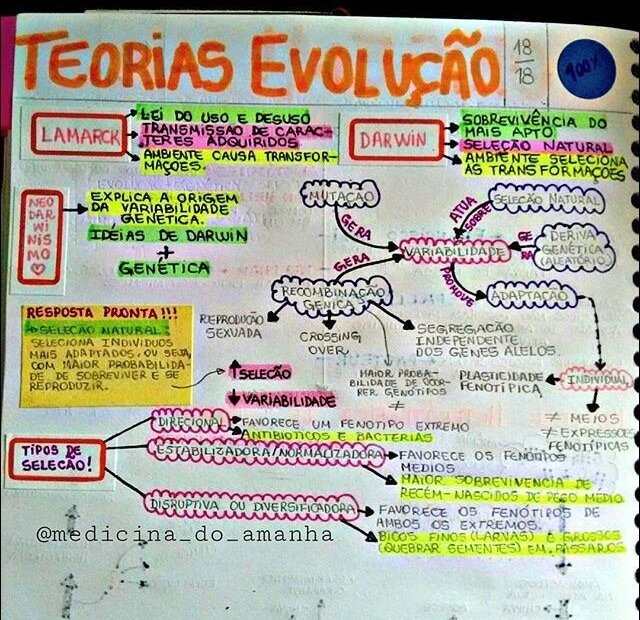 TEORIAS EVOLUÇÃO
18
18
100%
LAMARCK
LEI DO USO E DESUSO
TRANSMISSAO DE CARAC-
TERES ADQUIRIDOS
AMBIENTE CAUSA TRANSFOR-
MAÇÕES.
DARWIN
SOBREVIVÊNCIA DO
MAIS APTO
SELEÇÃO NATURAL
AMBIENTE SELECIONA
AS TRANSFORMAÇÕES
NEO
DAR
WI
NIS
MO
EXPLICA A ORIGEM
DA VARIABILIDADE
GENÉTICA.
IDÉIAS DE DARWIN
+
GENÉTICA
MUTAÇÃO
GERA
ATUA
SOBRE
SELEÇÃO NATURAL
VARIABILIDADE
GE
RA
DERIVA
GENÉTICA
(ALEATÓRIO)
GERA
PROMOVE
RECOMBINAÇÃO
GÊNICA
ADAPTAÇÃO
REPRODUÇÃO
SEXUADA
CROSSING
OVER
SEGREGAÇÃO
INDEPENDENTE
DOS GENES ALELOS.
MAIOR PROBA-
BILIDADE DE OCOR-
RER GENÓTIPOS
≠
RESPOSTA PRONTA!!!
→ SELEÇÃO NATURAL:
SELECIONA INDIVIDUOS
MAIS ADAPTADOS, OU SEJA,
COM MAIOR PROBABILIDA-
DE DE SOBREVIVER E SE
REPRODUZIR.
↑ SELEÇÃO
↓ VARIABILIDADE
PLASTICIDADE
FENOTÍPICA
INDIVIDUAL
≠ MEIOS
≠ EXPRESSÕES
FENOTÍPICAS
TIPOS DE
SELEÇÃO!
DIRECIONAL
FAVORECE UM FENÓTIPO EXTREMO
ANTIBIOTICOS E BACTERIAS
ESTABILIZADORA/NORMALIZADORA
FAVORECE OS FENÓTIPOS
MEDIOS
MAIOR SOBREVIVENCIA DE
RECÉM-NASCIDOS DE PESO MEDIO.
DISRUPTIVA OU DIVERSIFICADORA
FAVORECE OS FENÓTIPOS DE
AMBOS OS EXTREMOS.
BICOS FINOS (LARVAS) E GROSSOS
(QUEBRAR SEMENTES) EM PÁSSAROS
@medicina_do_amanha